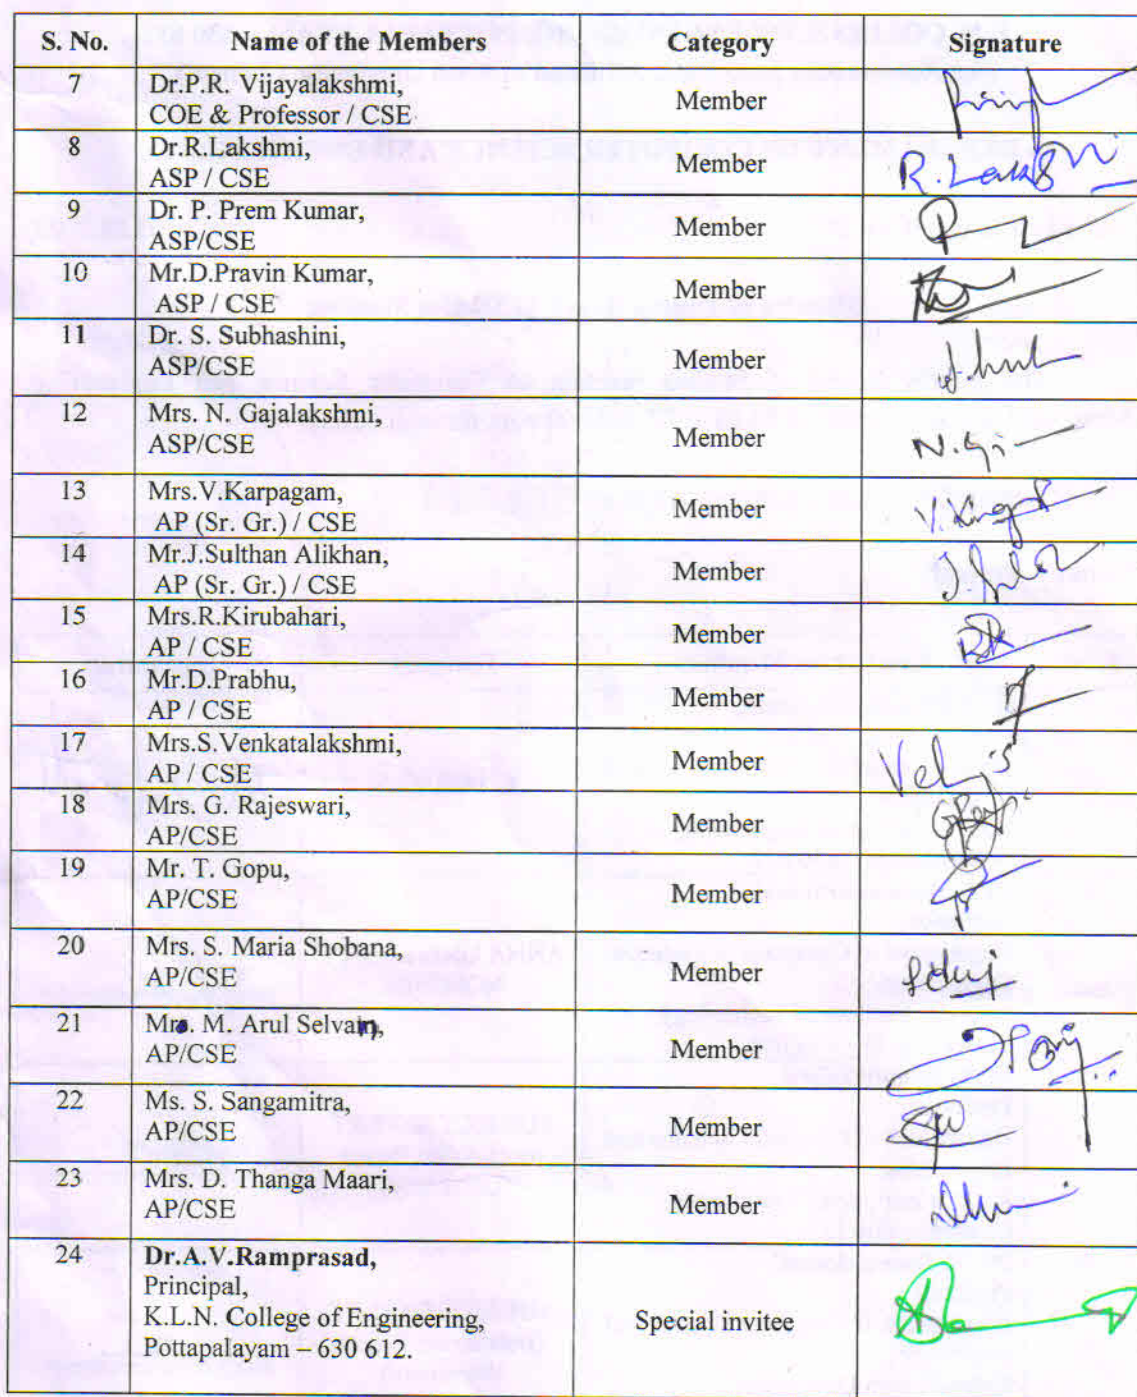 S. No. Name of the Members Category Signature
7 Dr.P.R. Vijayalakshmi,
COE & Professor / CSE Member
8 Dr.R.Lakshmi,
ASP / CSE Member R. Laksh
9 Dr. P. Prem Kumar,
ASP/CSE Member
10 Mr.D.Pravin Kumar,
ASP / CSE Member
11 Dr. S. Subhashini,
ASP/CSE Member
12 Mrs. N. Gajalakshmi,
ASP/CSE Member
13 Mrs.V.Karpagam,
AP (Sr. Gr.) / CSE Member
14 Mr.J.Sulthan Alikhan,
AP (Sr. Gr.) / CSE Member
15 Mrs.R.Kirubahari,
AP / CSE Member
16 Mr.D.Prabhu,
AP / CSE Member
17 Mrs.S.Venkatalakshmi,
AP / CSE Member
18 Mrs. G. Rajeswari,
AP/CSE Member
19 Mr. T. Gopu,
AP/CSE Member
20 Mrs. S. Maria Shobana,
AP/CSE Member
21 Mr. M. Arul Selvan,
AP/CSE Member
22 Ms. S. Sangamitra,
AP/CSE Member
23 Mrs. D. Thanga Maari,
AP/CSE Member
24 Dr.A.V.Ramprasad,
Principal,
K.L.N. College of Engineering, Special invitee
Pottapalayam – 630 612.